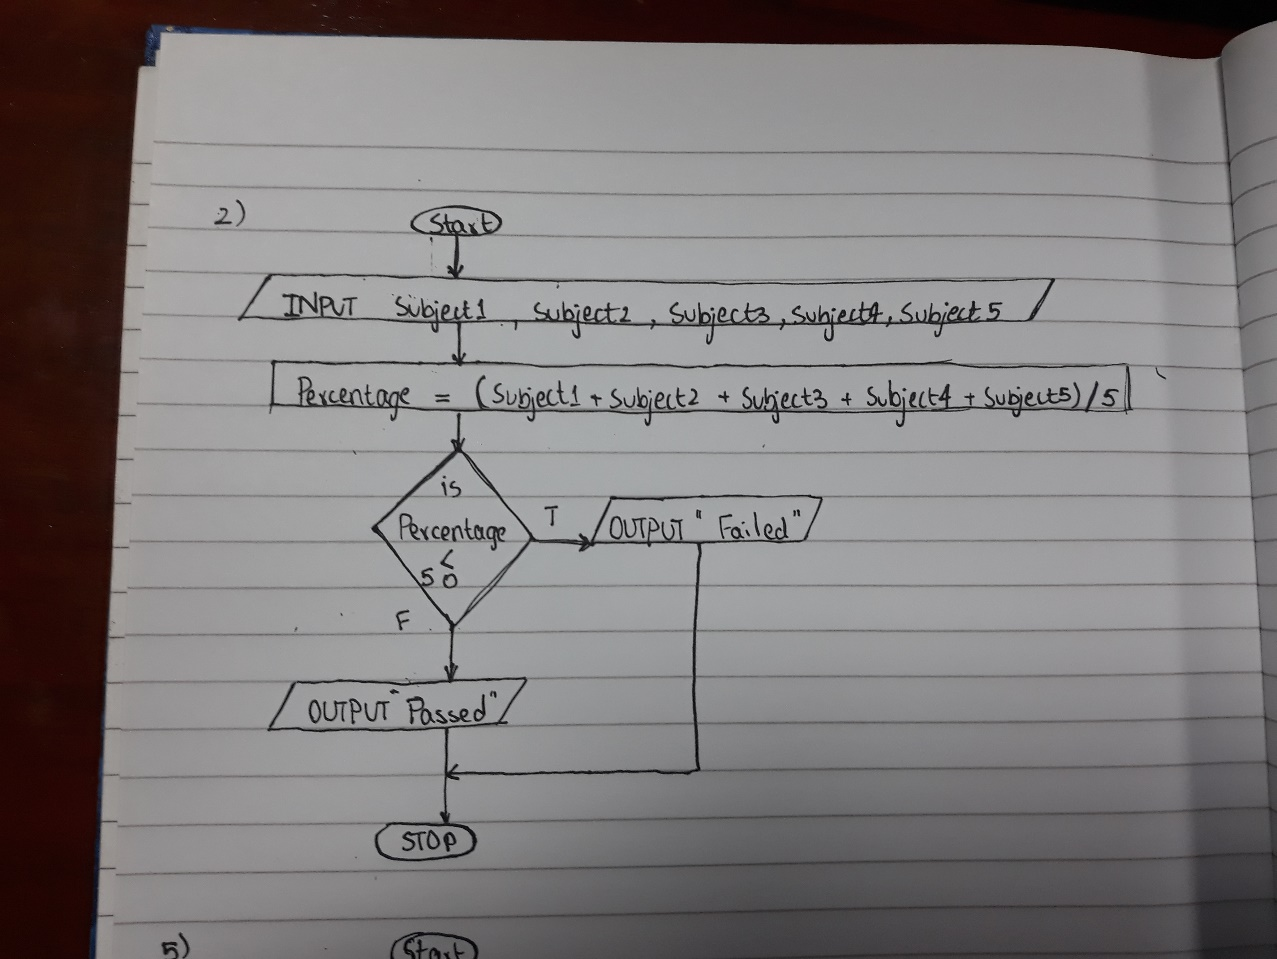 2)
Start
INPUT Subject1, Subject2, Subject3, Subject4, Subject5
Percentage = (Subject1 + Subject2 + Subject3 + Subject4 + Subject5)/5
is
Percentage
<
50
T
OUTPUT "Failed"
F
OUTPUT "Passed"
STOP
5)
Start